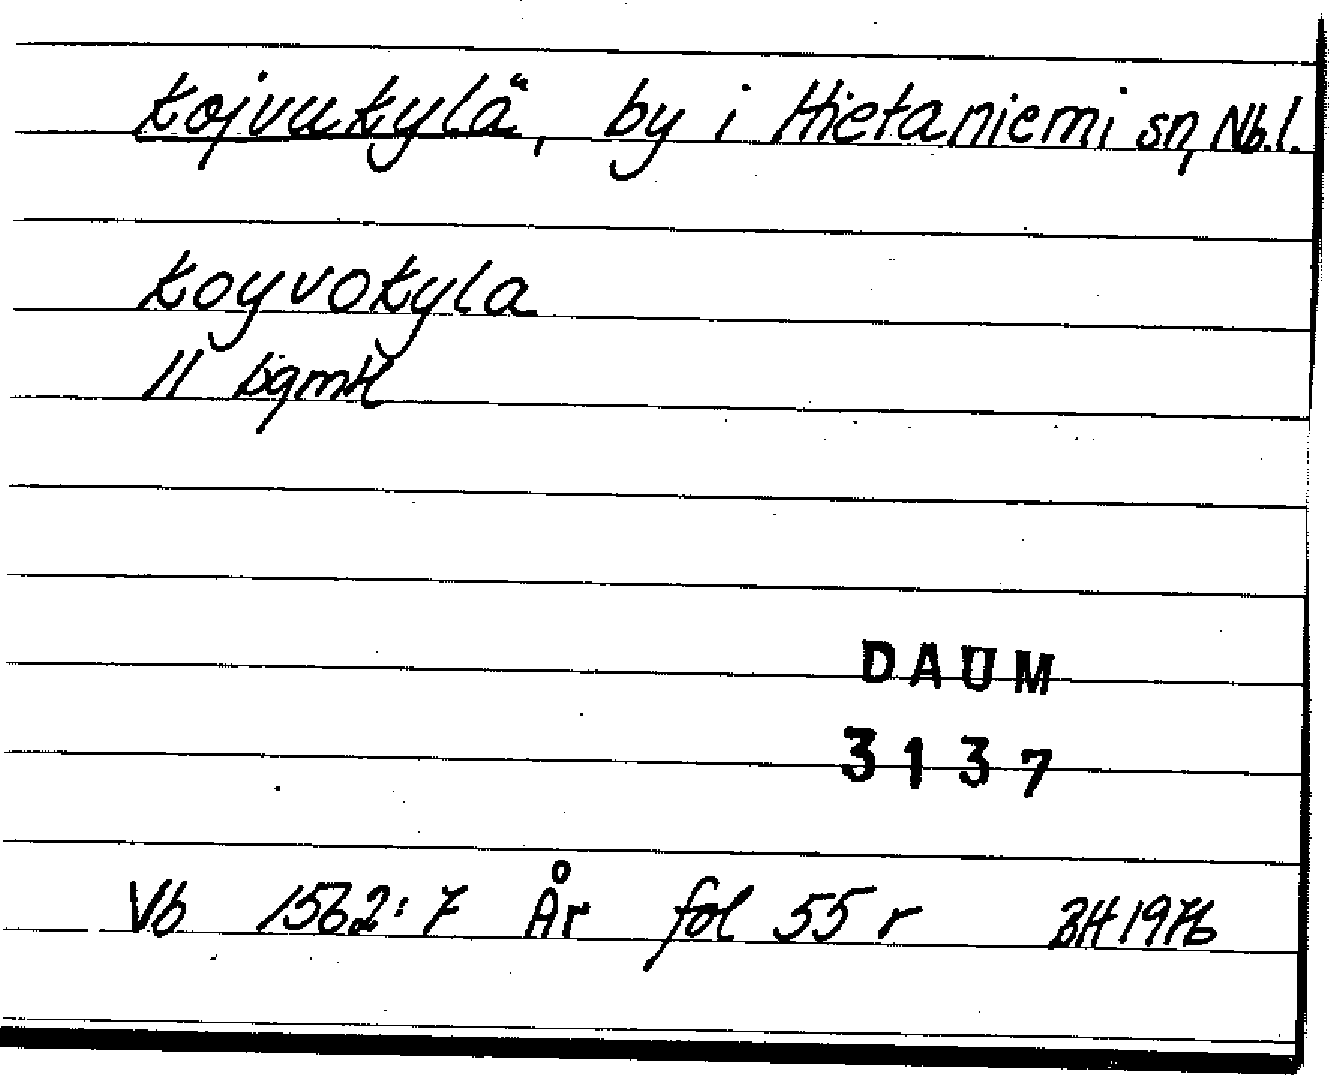 Kojvukylä, by i Hietaniemi sn, Nb.l.
Koyvokyla
11 bgmK
DAUM
3137
Vb 1562:7 År fol 55 r BH 1976